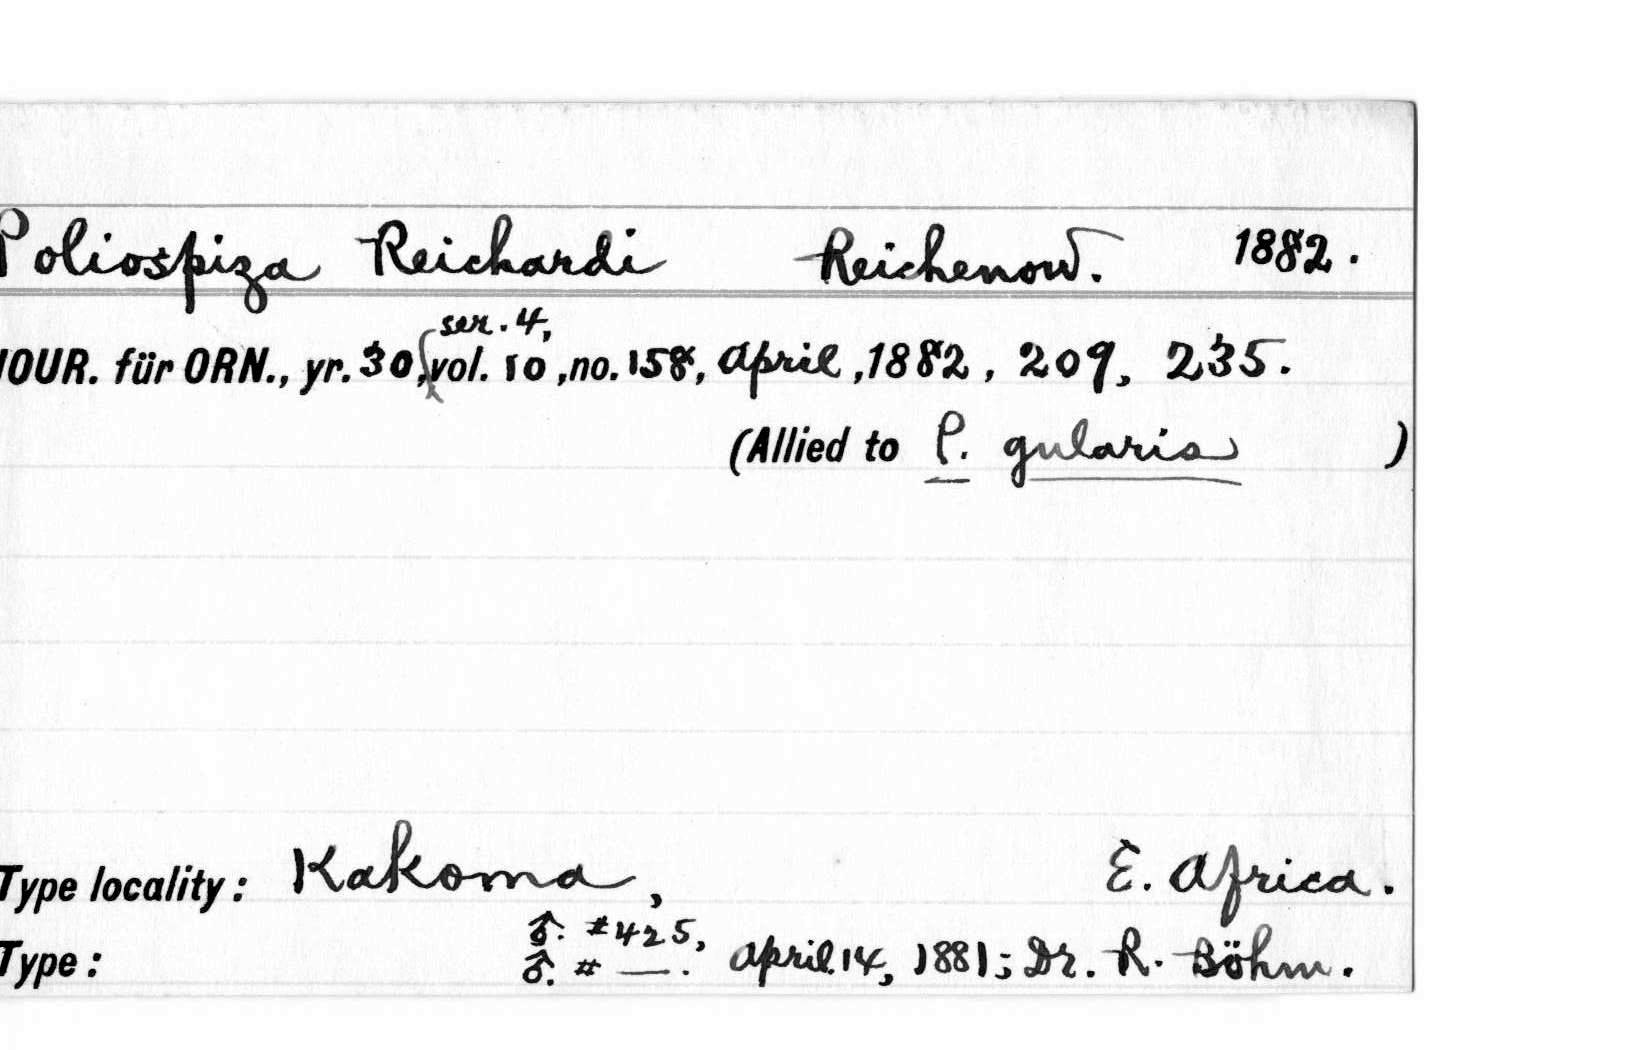 Poliospiza Reichardi Reichenow. 1882.
ser. 4,
JOUR. für ORN., yr. 30, (vol. 10, no. 158, April, 1882, 209, 235.
(Allied to P. gularis )
Type locality: Kakoma, E. Africa.
♂. #425,
Type: ♂. # —. April 14, 1881; Dr. R. Böhm.